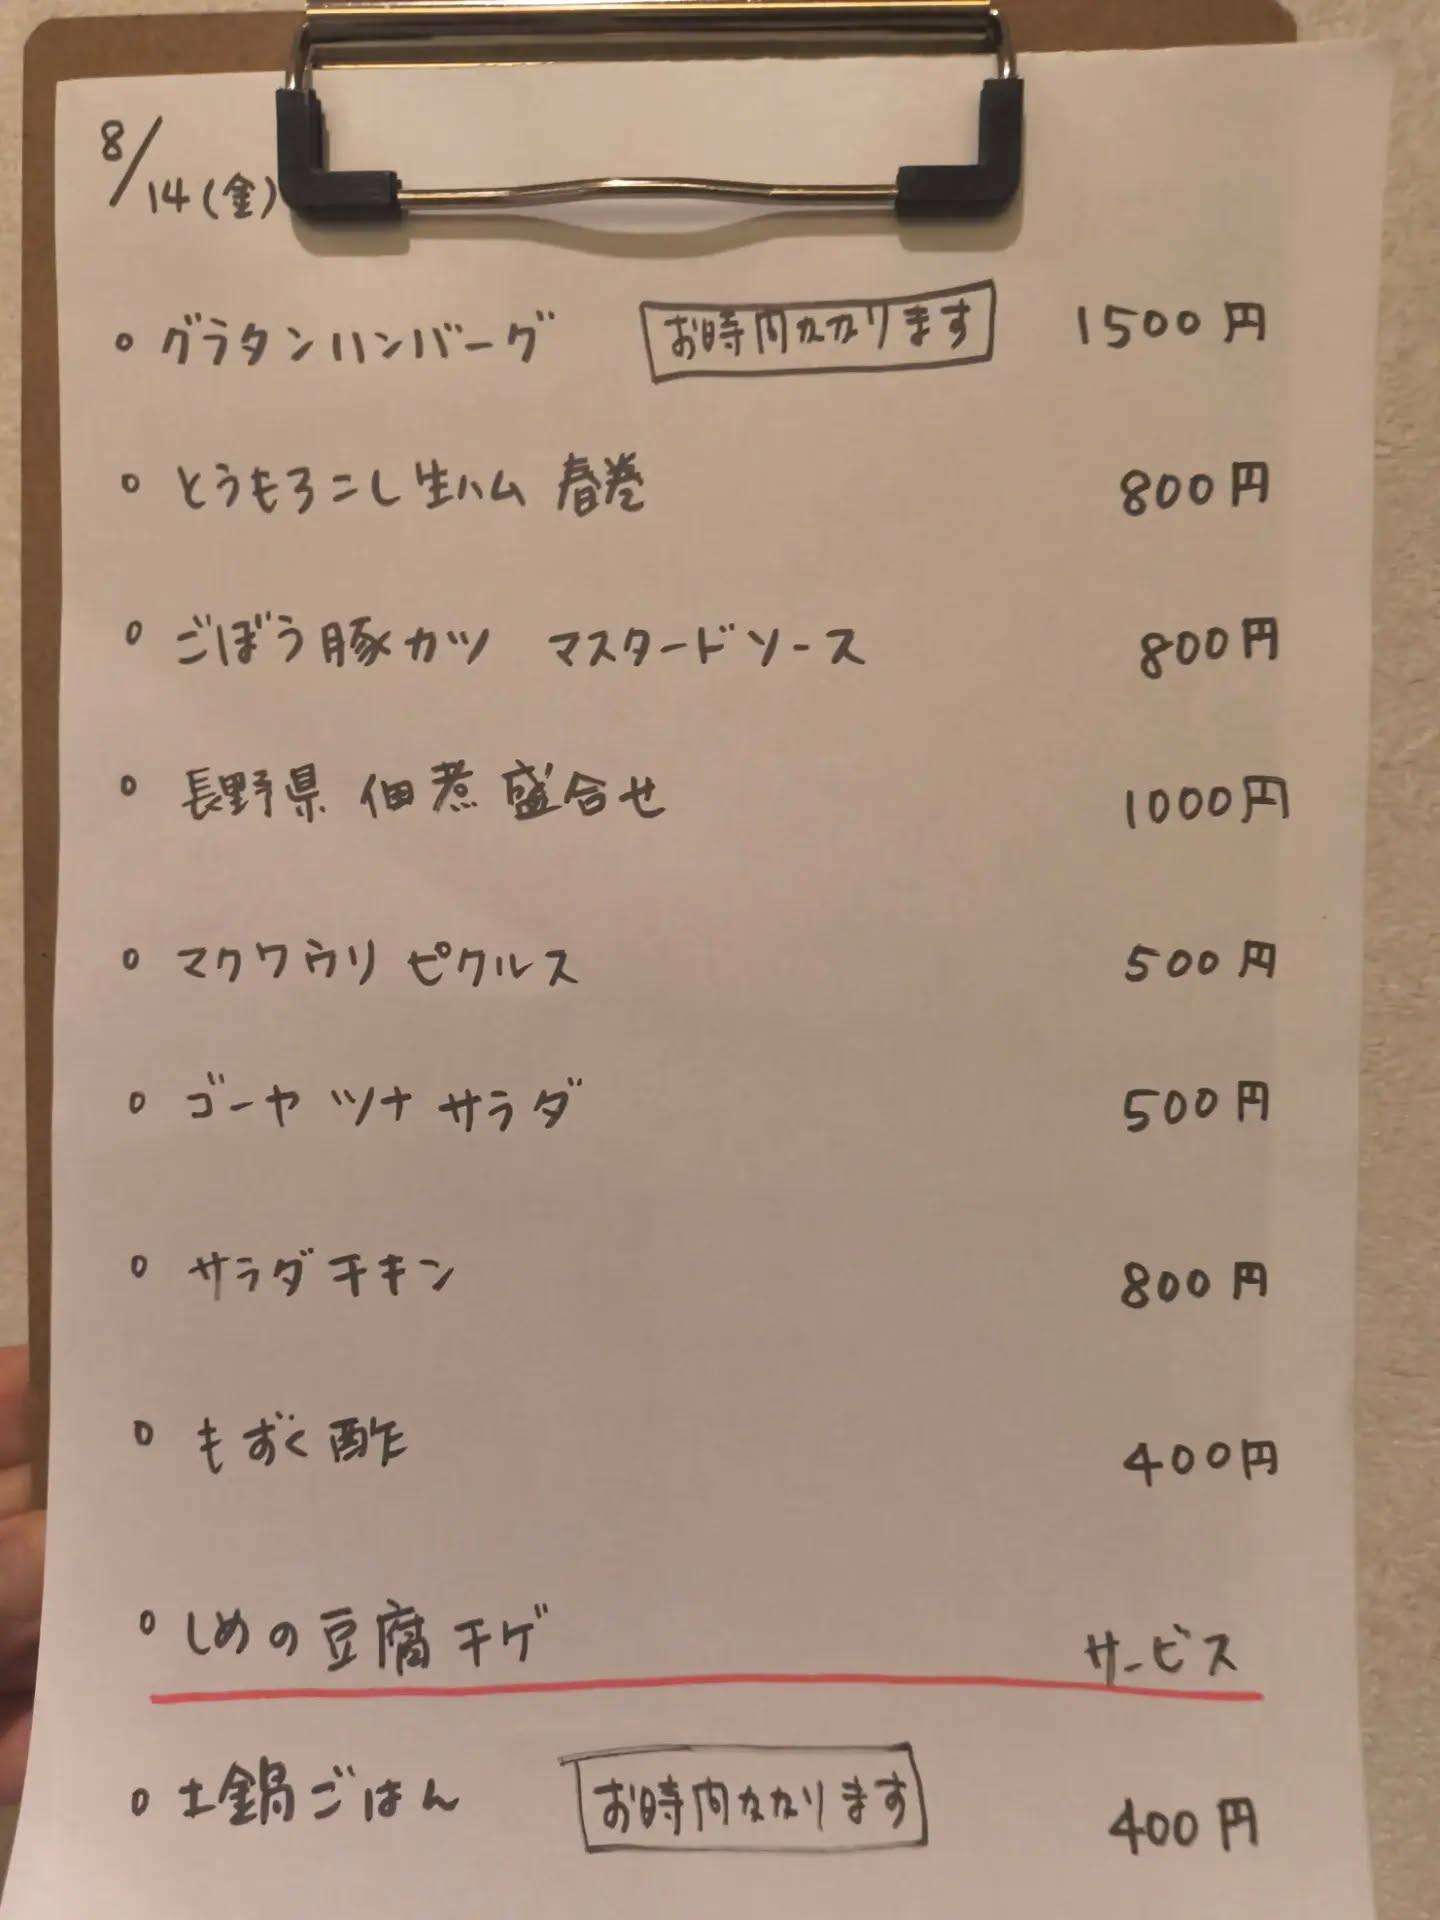 8/14(金)
○ グラタンハンバーグ お時間かかります 1500円
○ とうもろこし生ハム 春巻 800円
○ ごぼう豚カツ マスタードソース 800円
○ 長野県 佃煮 盛合せ 1000円
○ マクワウリ ピクルス 500円
○ ゴーヤ ツナ サラダ 500円
○ サラダチキン 800円
○ もずく酢 400円
○ しめの豆腐チゲ サービス
○ 土鍋ごはん お時間かかります 400円